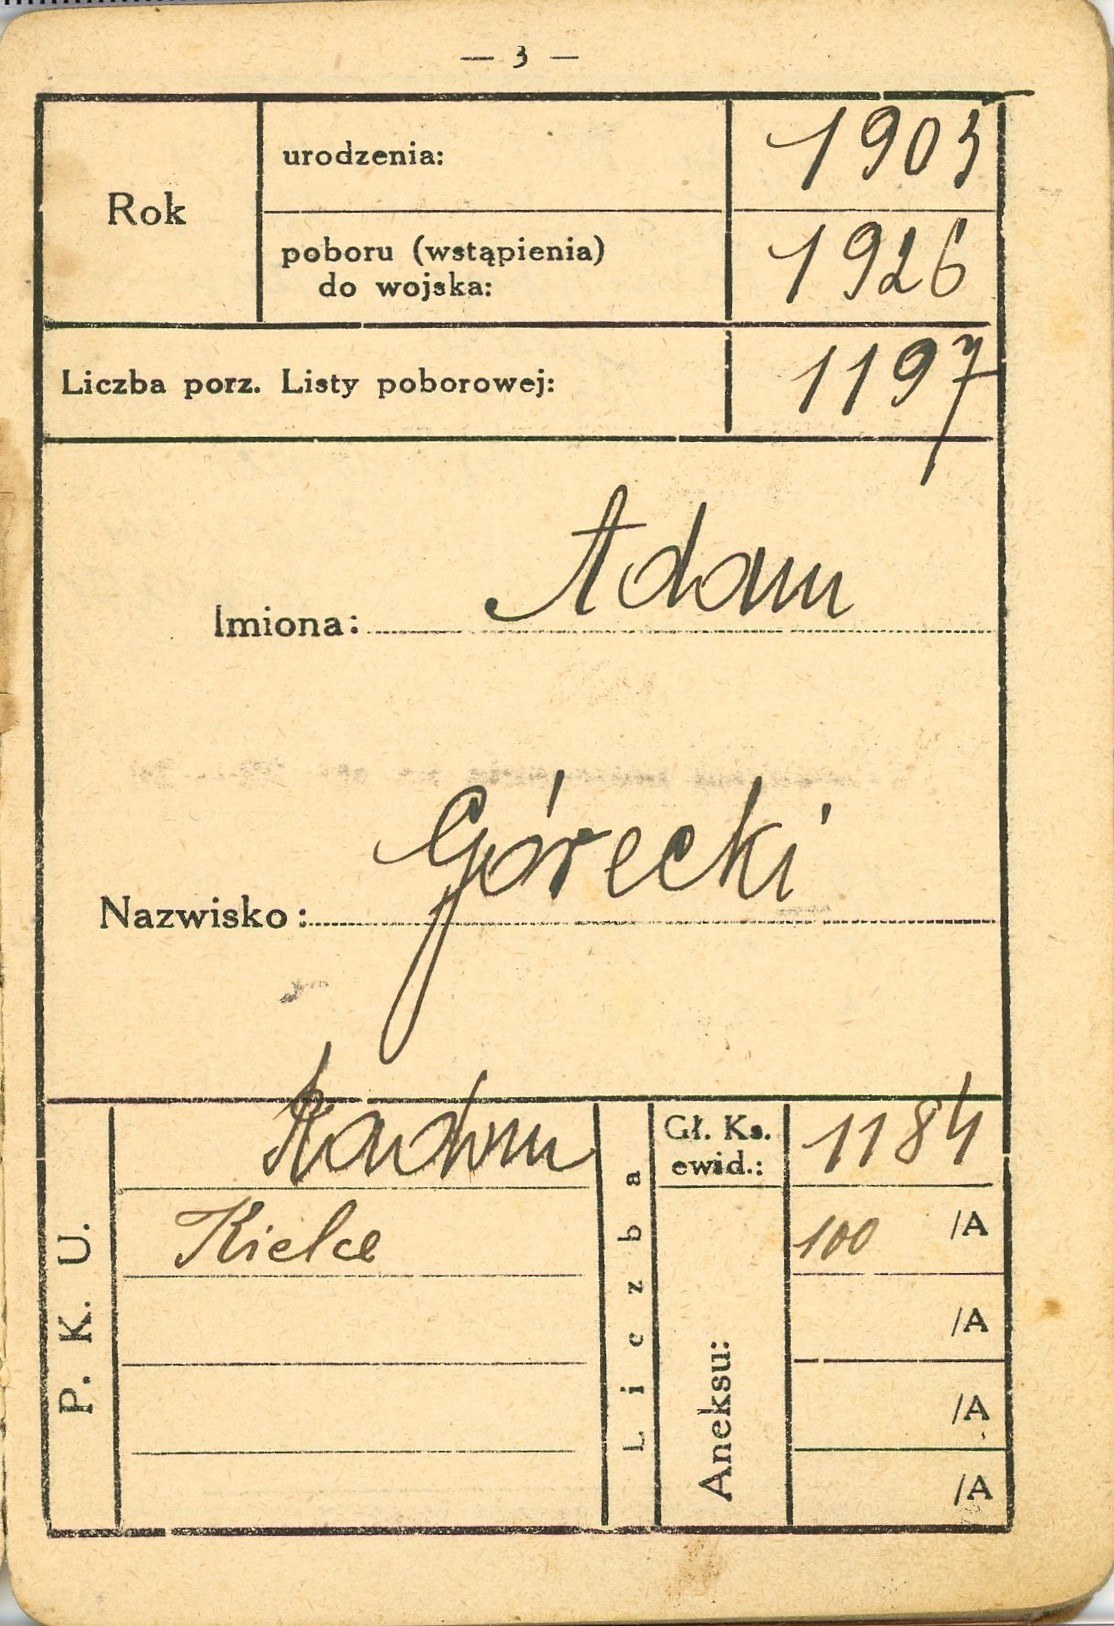 — 3 —
Rok
urodzenia: 1905
poboru (wstąpienia)
do wojska: 1926
Liczba porz. Listy poborowej: 1197
Imiona: Adam
Nazwisko: Górecki
P. K. U.
Radom
Kielce
Liczba
Gł. Ks.
ewid.: 1184
Aneksu:
100 /A
/A
/A
/A